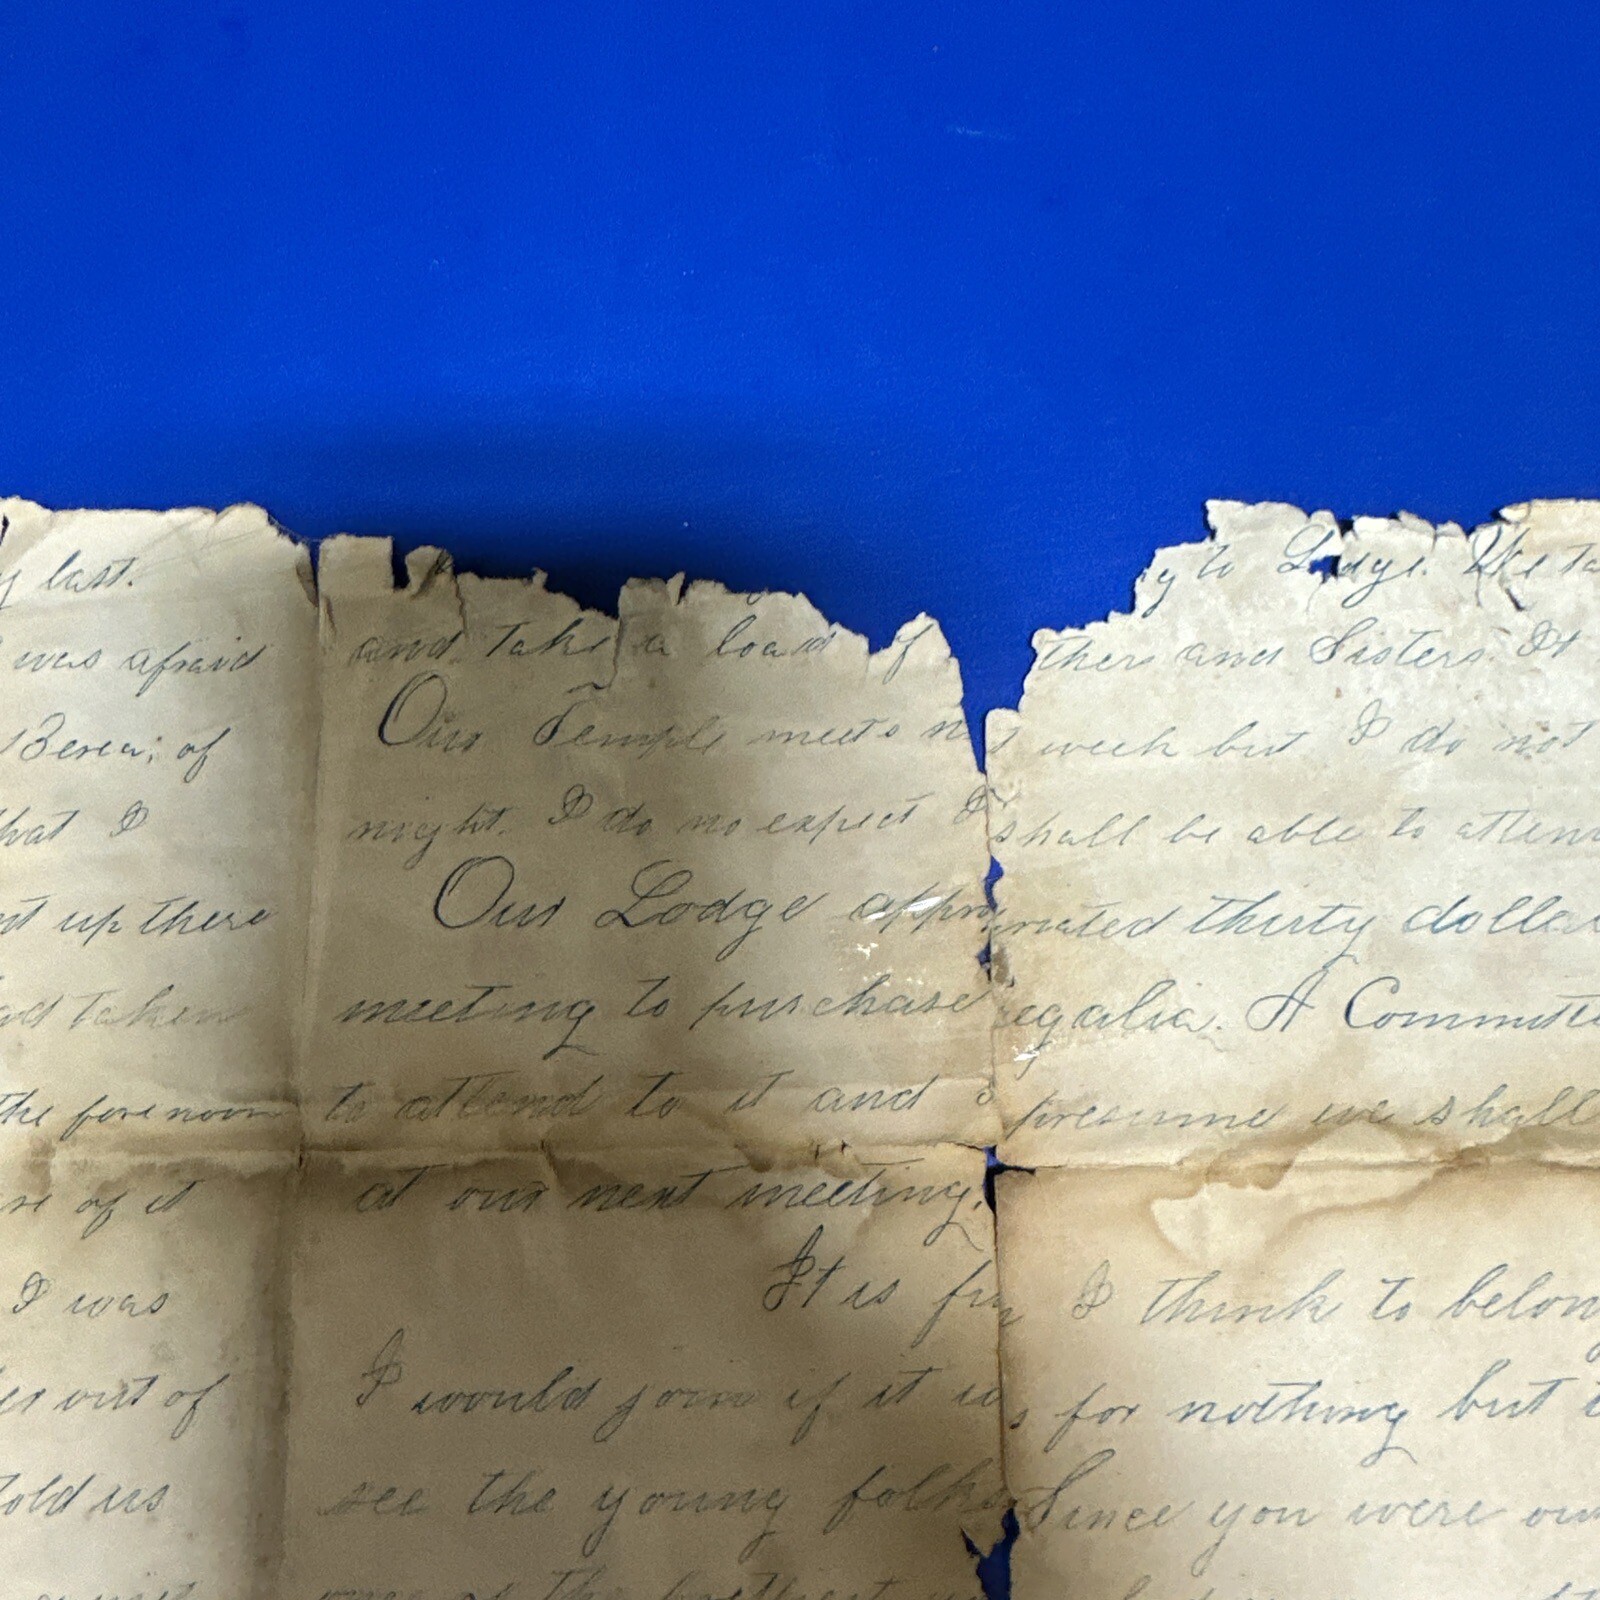 last.
was afraid
Berea; of
that I
up there
had taken
the forenoon
of it
I was
out of
told us
to Lodge. We
and take a load of thers and Sisters. It
Our Temple meets week but I do not
night. I do no expect I shall be able to atten
Our Lodge appropriated thirty dollar
meeting to purchase regalia. A Committe
to attend to it and I presume we shall
at our next meeting.
It is fun I think to belon
I would join if it was for nothing but t
see the young folks. Since you were our
of the